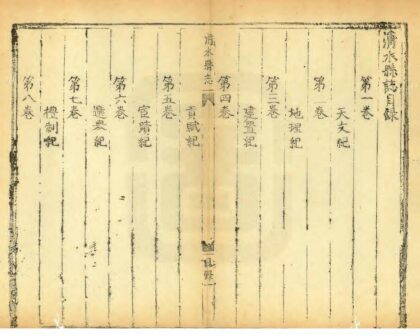 清水縣誌目錄
第一卷
天文紀
第二卷
地理紀
第三卷
建置紀
第四卷
清水縣志
目錄
一
貢賦紀
第五卷
官師紀
第六卷
選舉紀
第七卷
禮制紀
第八卷